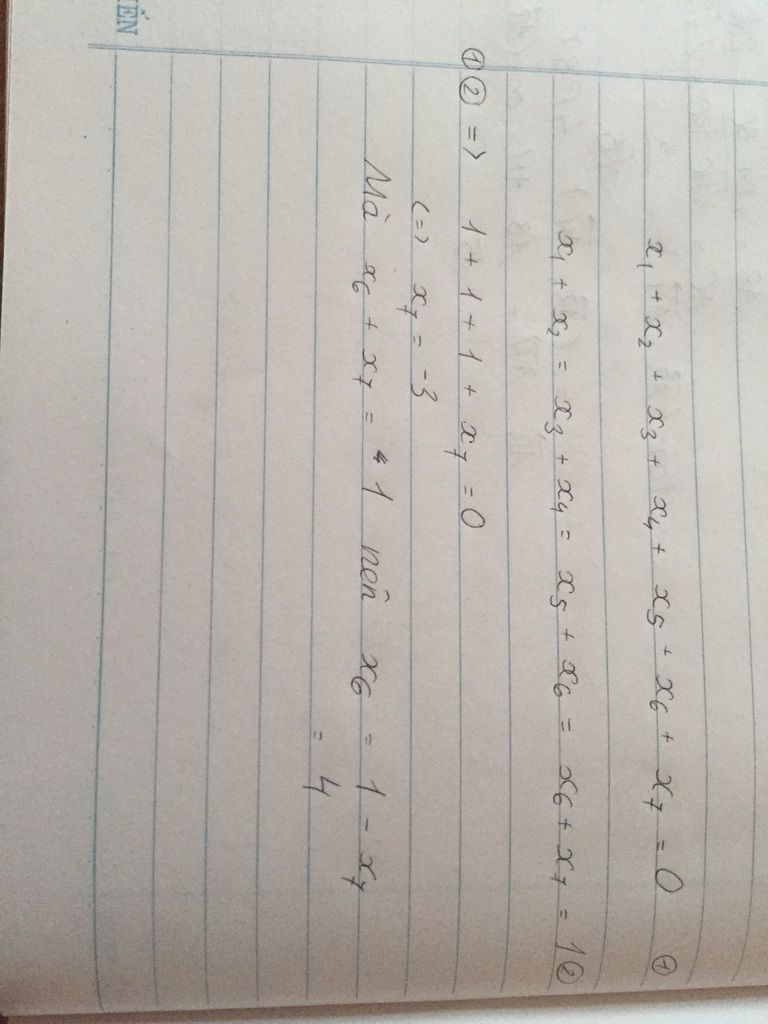 x₁ + x₂ + x₃ + x₄ + x₅ + x₆ + x₇ = 0 ①
x₁ + x₂ = x₃ + x₄ = x₅ + x₆ = x₆ + x₇ = 1 ②
① ② => 1 + 1 + 1 + x₇ = 0
(=) x₇ = -3
Mà x₆ + x₇ = 1 nên x₆ = 1 - x₇
= 4